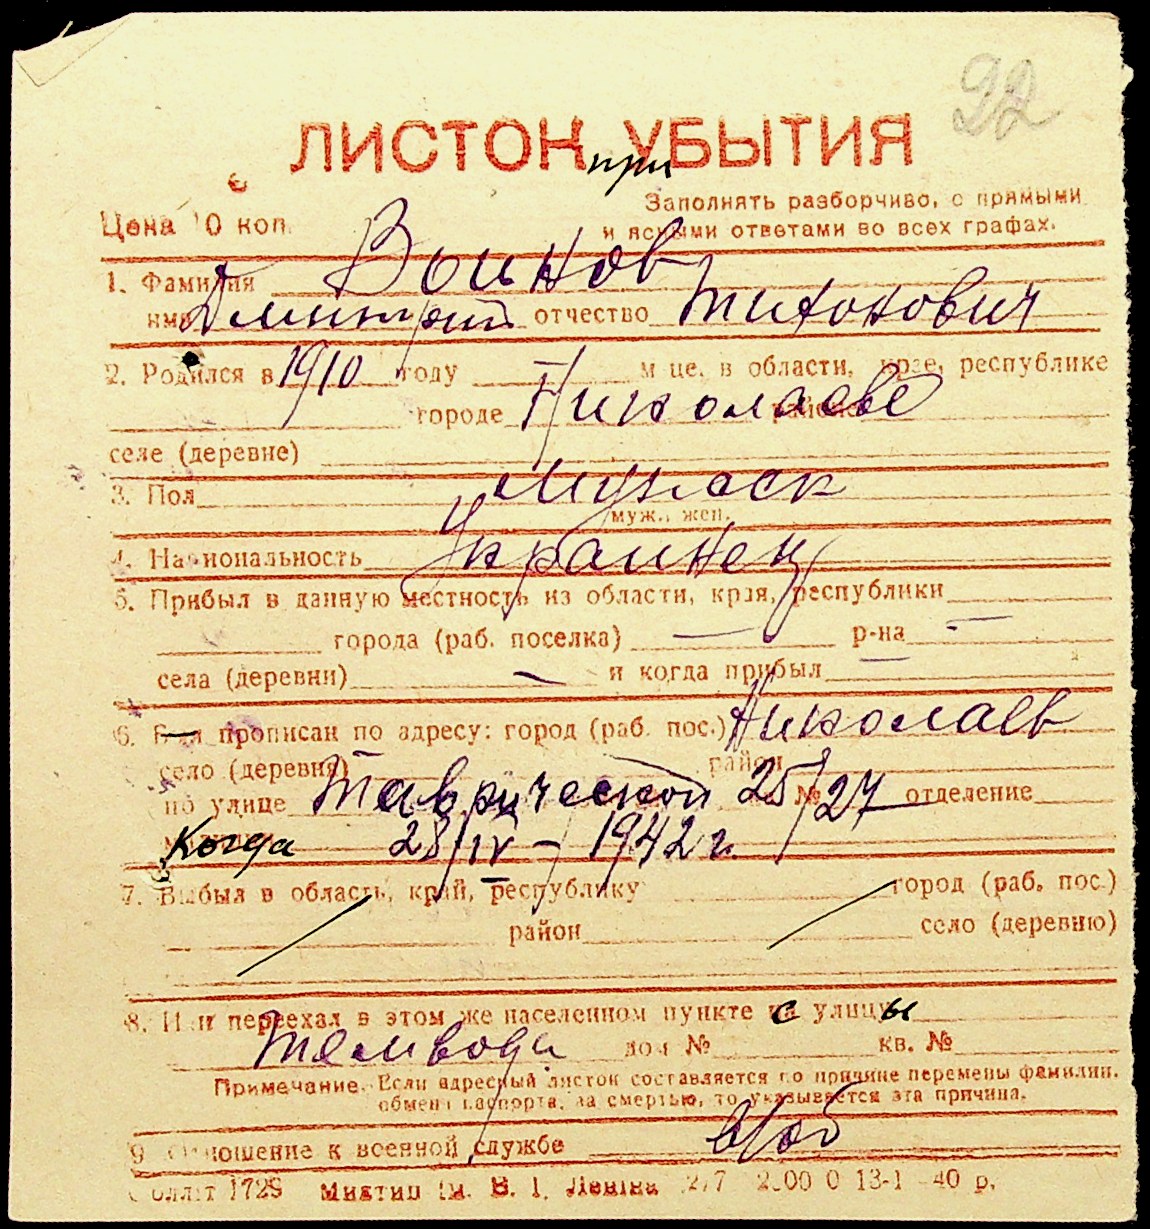 92
ЛИСТОК при УБЫТИЯ
Заполнять разборчиво, с прямыми
Цена 10 коп. и ясными ответами во всех графах.
1. Фамилия Воинов
имя Дмитрий отчество Тихонович
2. Родился в 1910 году — м-це, в области, крае, республике
городе Николаеве районе
селе (деревне)
3. Пол мужеск
муж., жен.
4. Национальность Украинец
5. Прибыл в данную местность из области, края, республики
города (раб. поселка) — р-на —
села (деревни) — и когда прибыл —
6. Был прописан по адресу: город (раб. пос.) Николаев
село (деревня) — район
по улице Таврической 25/27 № отделение
милиции Когда 28/IV – 1942 г.
7. Выбыл в область, край, республику — город (раб. пос.)
район село (деревню)
8. Или переехал в этом же населенном пункте с улицы
Темвода дом № кв. №
Примечание. Если адресный листок составляется по причине перемены фамилии,
обмена паспорта, за смертью, то указывается эта причина.
9. Отношение к военной службе в/об
1729 им. В. І. Леніна 13-1 -40 р.